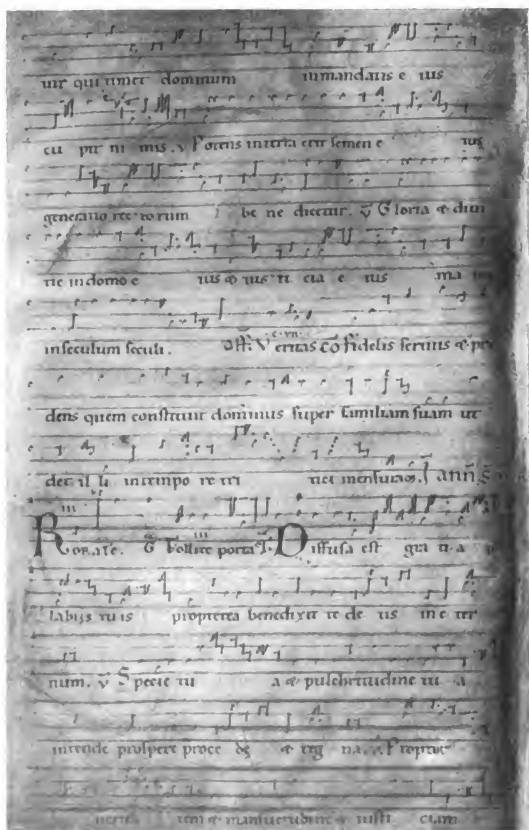 uir qui timet dominum in mandatis e ius
cu pit ni mis. ℣ Potens in terra erit semen e ius
generatio rec to rum be ne dicetur. ℣ Gloria & diui
tie in domo e ius & ius ti cia e ius ma
in seculum seculi. Off. Veritas cō Fidelis seruus & pru
dens quem constituit dominus super familiam suam ut
det il li in tempo re tri tici mensuram.
Rorate. G̅ Tollite portas. Diffusa est gra ti a
labiis tu is propterea benedixit te de us in e ter
num. ℣ Specie tu a & pulchritudine tu a
intende prospere proce de & reg na. ℣ Propter
tem & mansuetudinem & iusti ciam